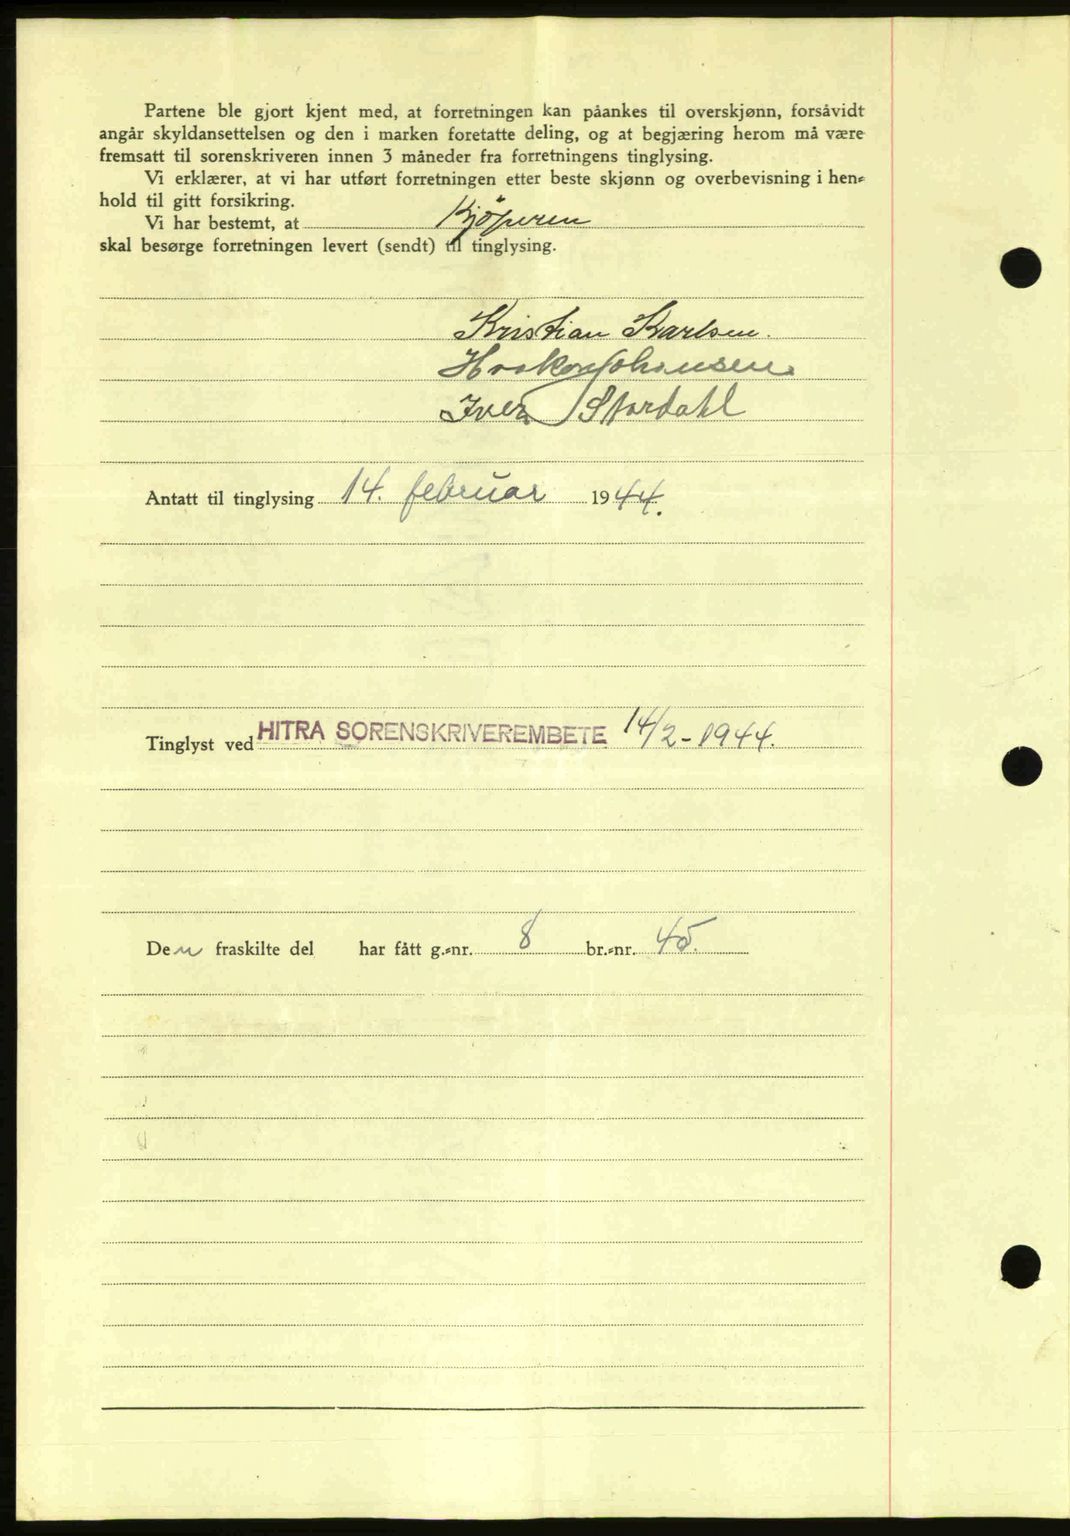 Partene ble gjort kjent med, at forretningen kan påankes til overskjønn, forsåvidt
angår skyldansettelsen og den i marken foretatte deling, og at begjæring herom må være
fremsatt til sorenskriveren innen 3 måneder fra forretningens tinglysing.
Vi erklærer, at vi har utført forretningen etter beste skjønn og overbevisning i hen-
hold til gitt forsikring.
Vi har bestemt, at Kjöperen
skal besørge forretningen levert (sendt) til tinglysing.
Kristian Karlsen.
Haakon Johansen
Iver Stordahl
Antatt til tinglysing 14. februar 1944.
Tinglyst ved HITRA SORENSKRIVEREMBETE 14/2-1944.
Den fraskilte del har fått g.-nr. 8 br.-nr. 45.